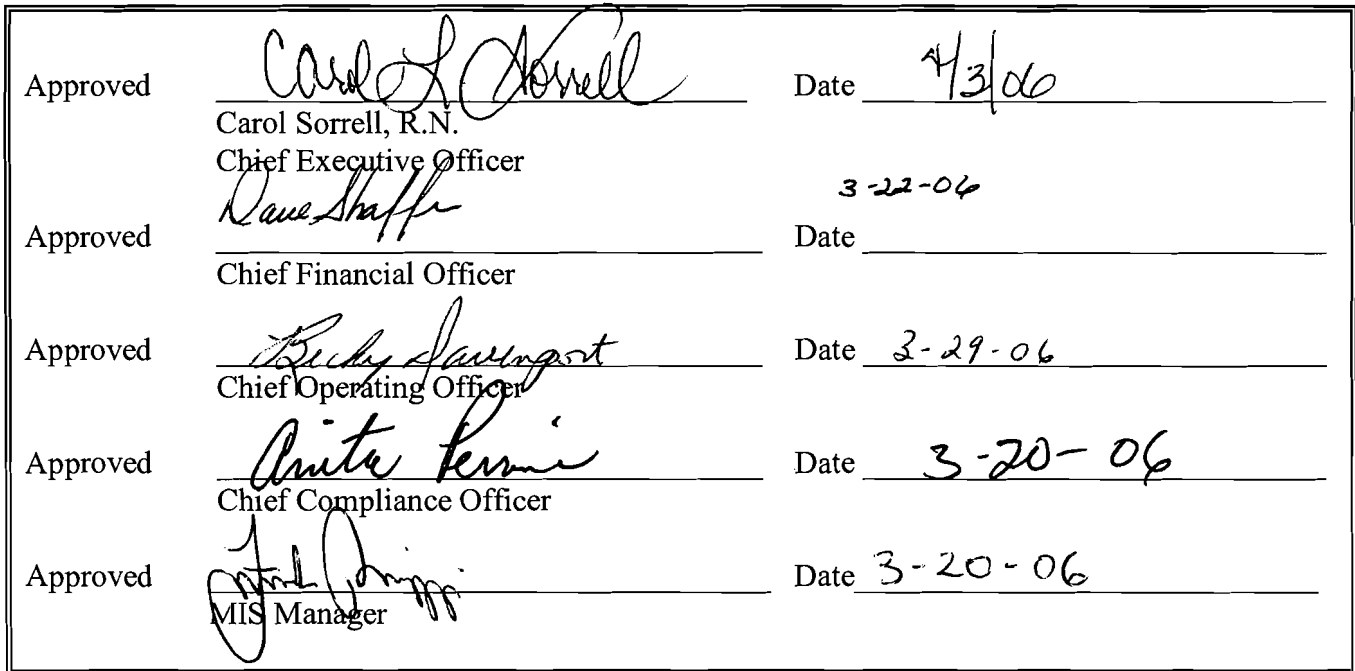 Approved Carol L Sorrell Date 4/3/06
Carol Sorrell, R.N.
Chief Executive Officer
Dave Shaffer 3-22-06
Approved Date
Chief Financial Officer
Approved Becky Davenport Date 3-29-06
Chief Operating Officer
Approved Anita Date 3-20-06
Chief Compliance Officer
Approved Date 3-20-06
MIS Manager